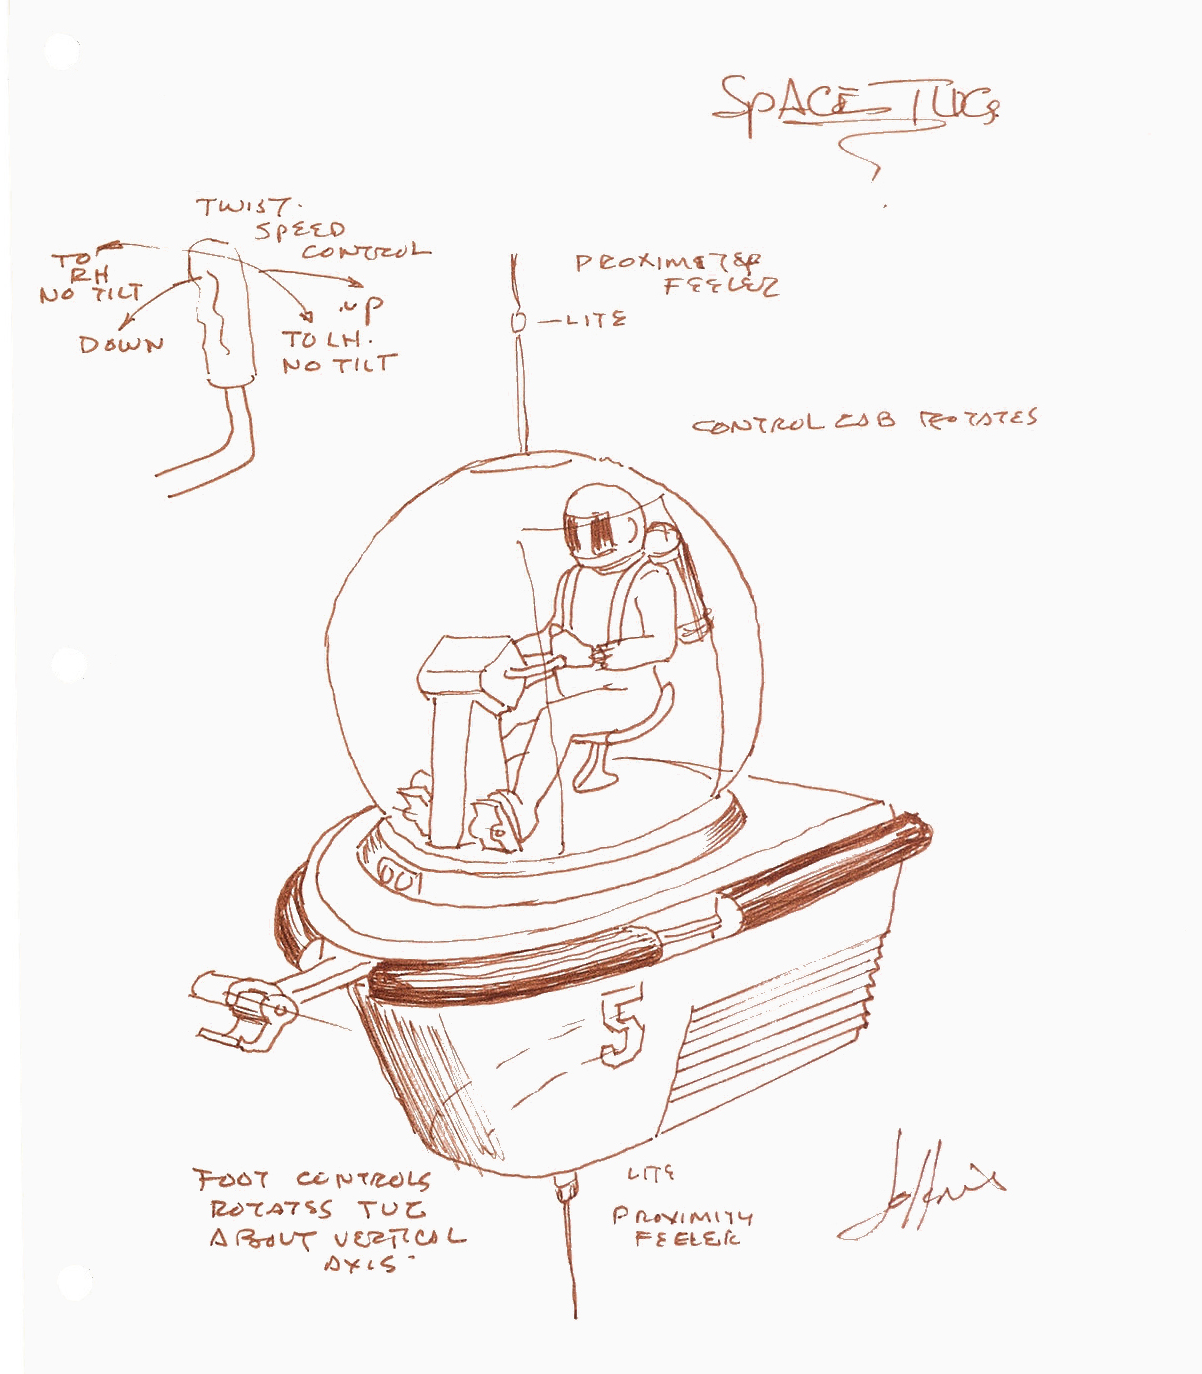 SPACE TUG
TWIST.
SPEED
CONTROL
TO
RH
NO TILT
DOWN
UP
TO LH.
NO TILT
PROXIMETER
FEELER
LITE
CONTROL CAB ROTATES
001
5
FOOT CONTROLS
ROTATES TUG
ABOUT VERTICAL
AXIS
LITE
PROXIMITY
FEELER